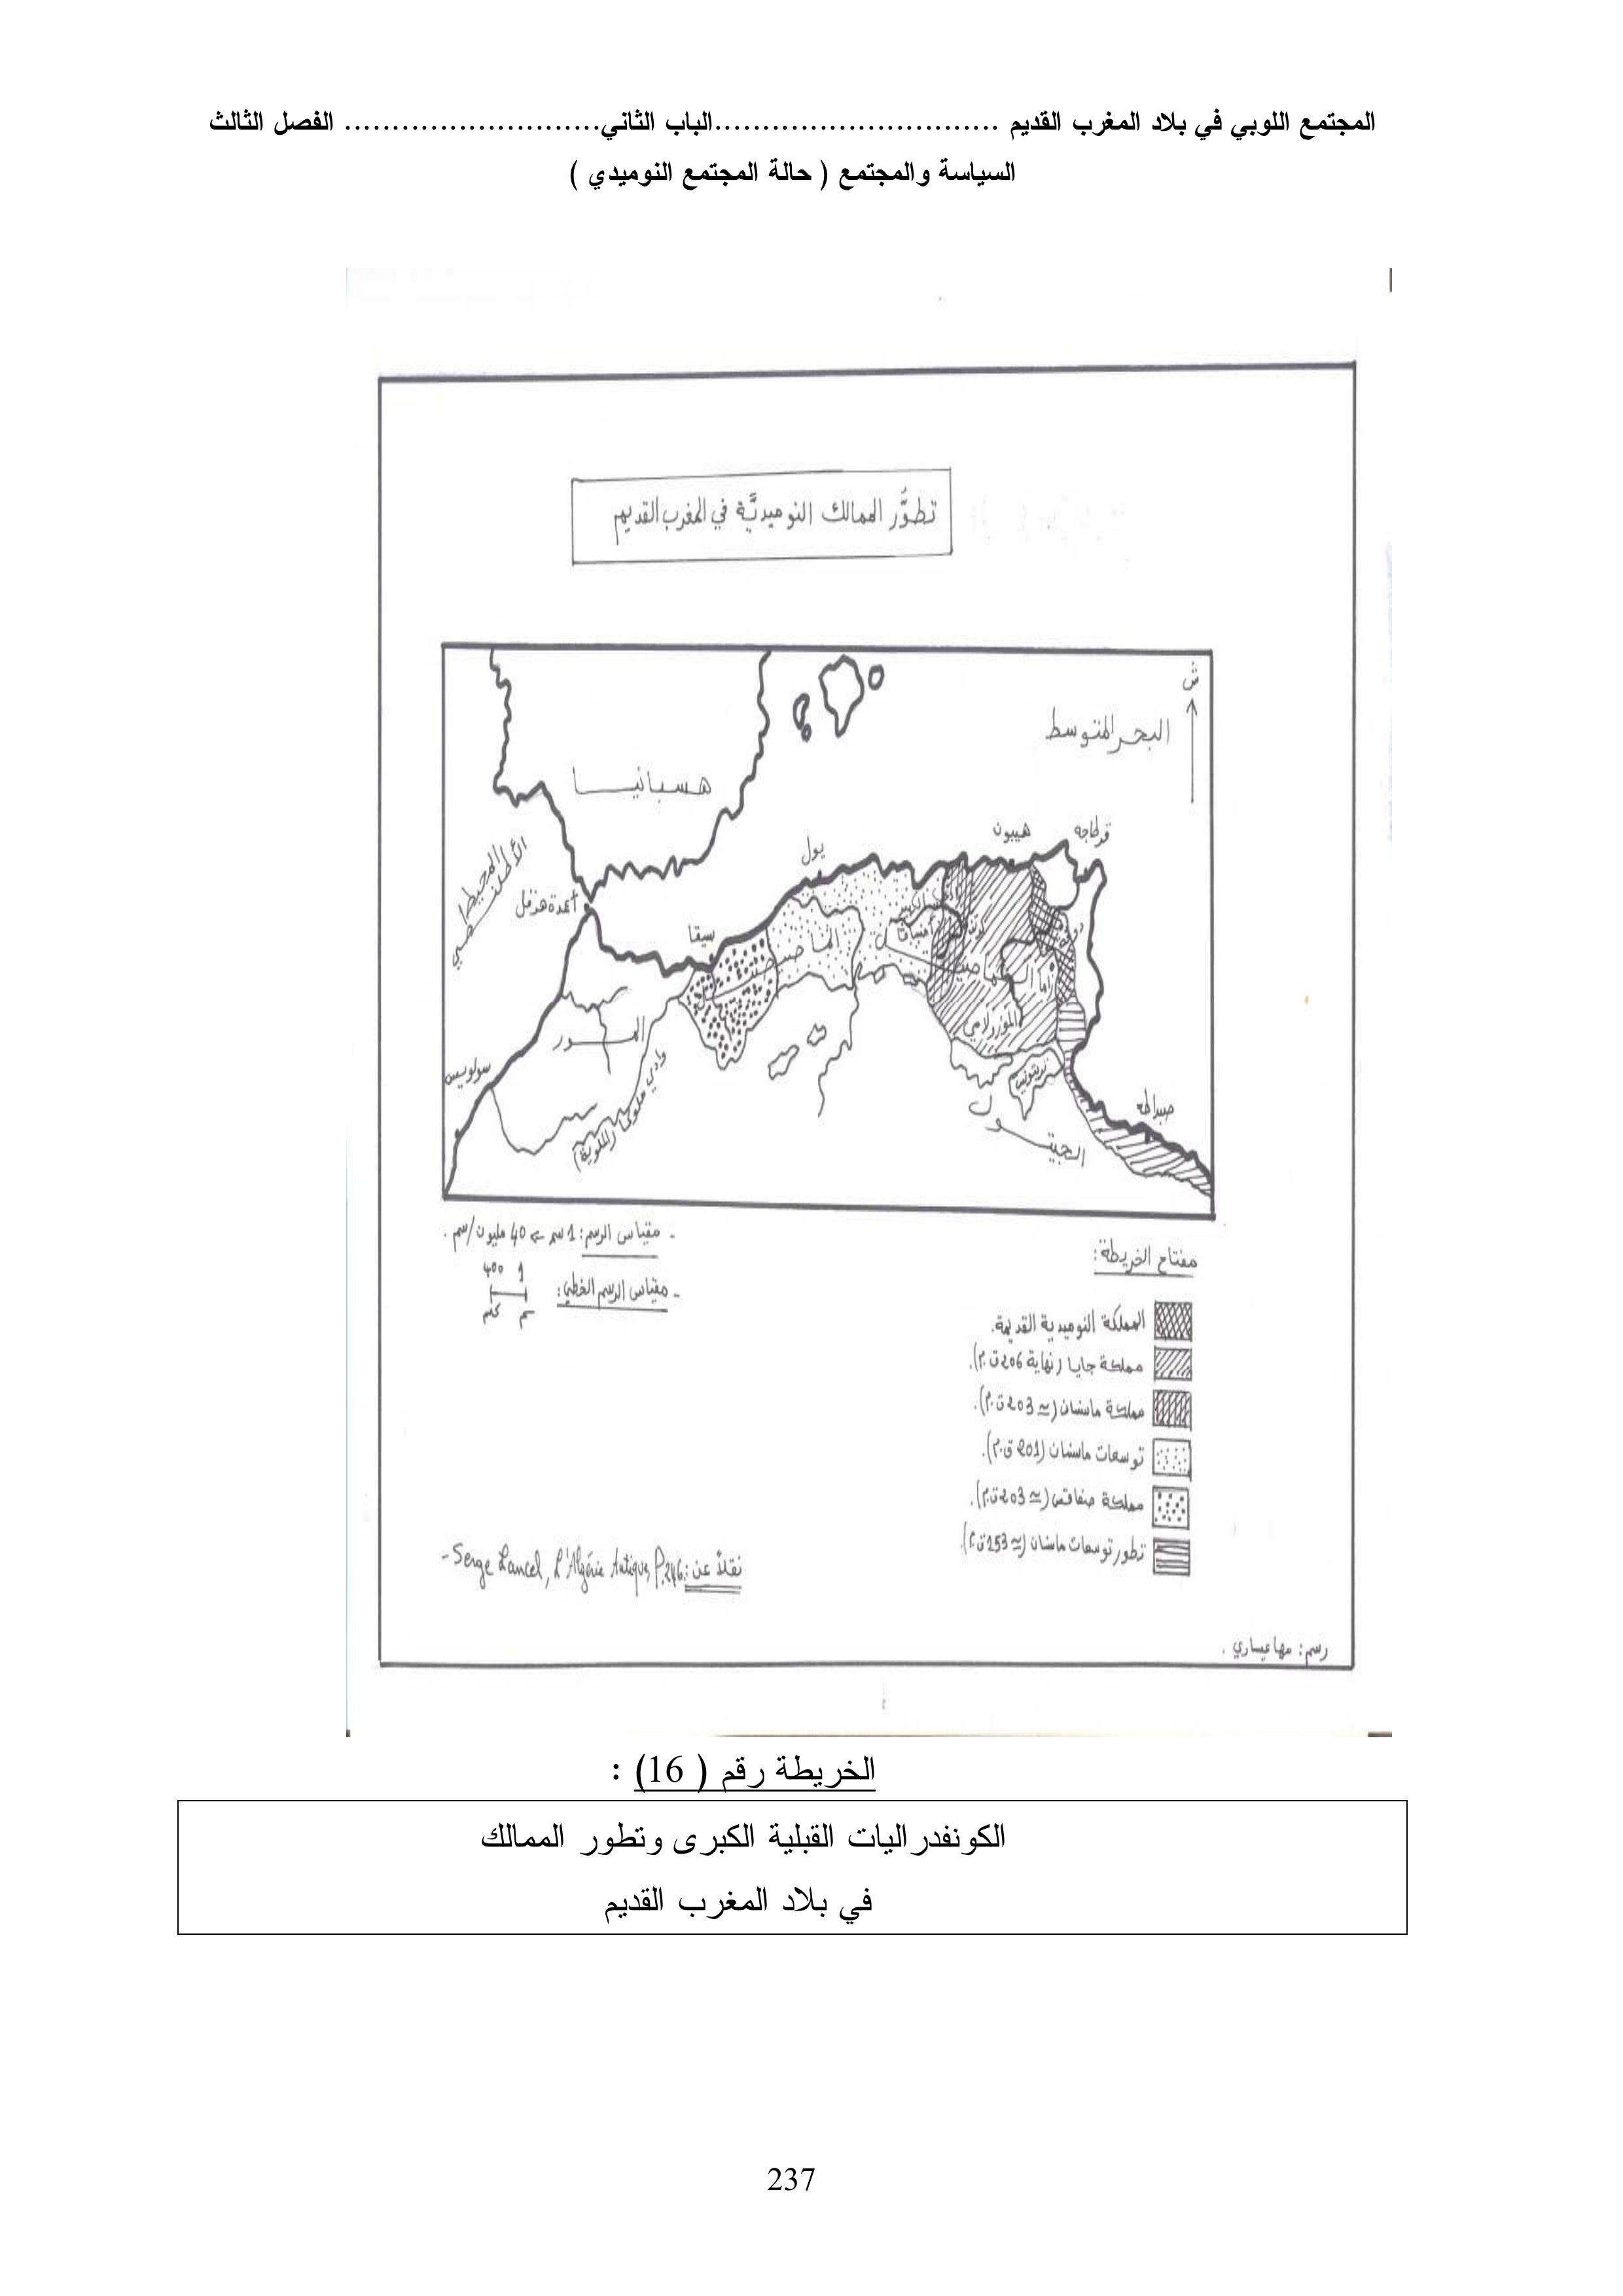 المجتمع اللوبي في بلاد المغرب القديم ..............................الباب الثاني........................... الفصل الثالث
السياسة والمجتمع ( حالة المجتمع النوميدي )
تطوُّر الممالك النوميديَّة في المغرب القديم
ش
البحر المتوسط
هسبانيا
قرطاجه
هيبون
يول
المحيط الأطلنصي
أعمدة هرقل
سيقا
الماصيصيل
الماصيل
الموزولامي
المور
سولويس
وادي ملوكا (الملوية)
تريتونيس
صبراطه
الجيتول
- مقياس الرسم: 1 سم ← 40 مليون/سم .
- مقياس الرسم الخطي:
400 1
كلم سم
مفتاح الخريطة:
المملكة النوميدية القديمة.
مملكة جايا (نهاية 206 ق.م).
مملكة ماسنسان (≃ 203 ق.م).
توسعات ماسنسان (201 ق.م).
مملكة صفاقس (≃ 203 ق.م).
تطور توسعات ماسنسان (≃ 153 ق.م).
نقلاً عن: Serge Lancel, L'Algérie Antique, P.246. -
رسم: مها عيساري .
الخريطة رقم ( 16) :
الكونفدراليات القبلية الكبرى وتطور الممالك
في بلاد المغرب القديم
237